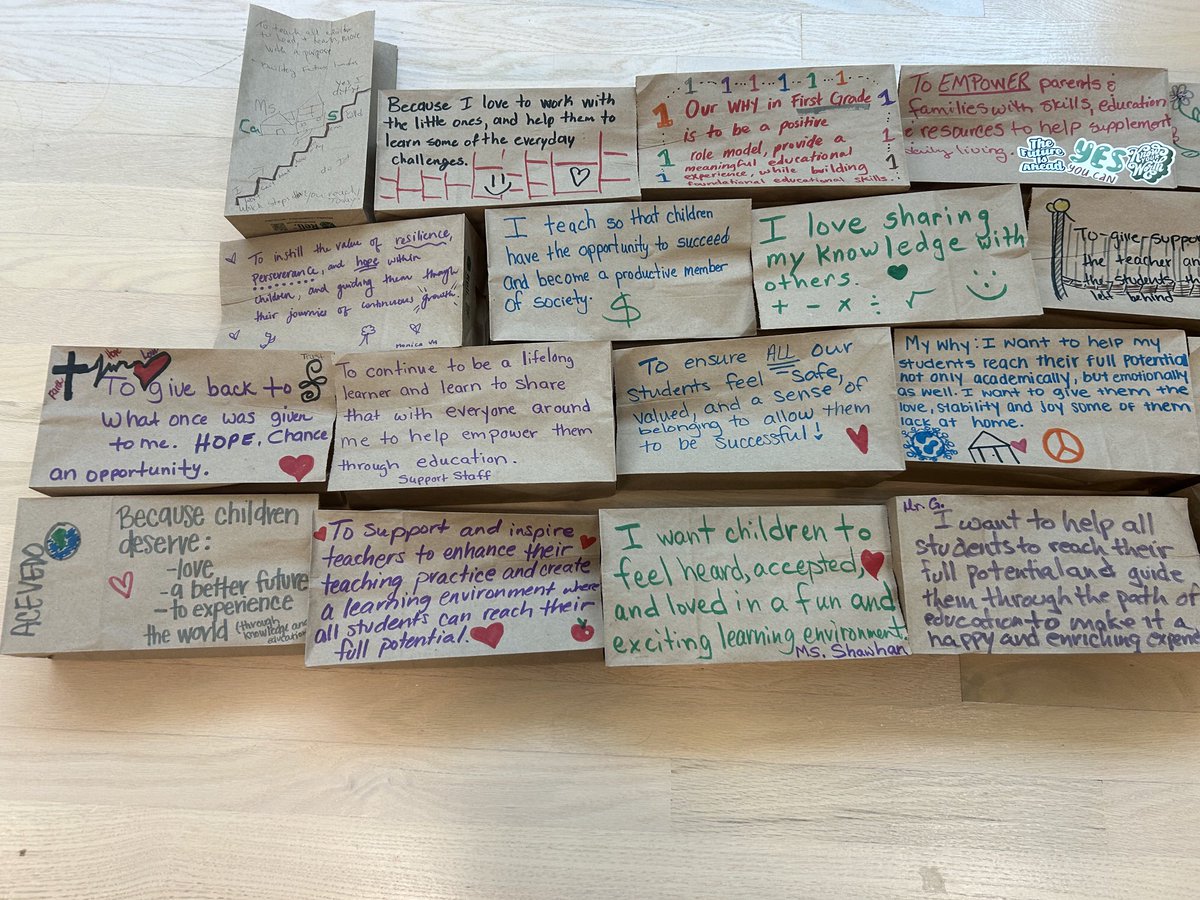 To teach all
with a purpose
Building Future
Ms.
Because I love to work with
the little ones, and help them to
learn some of the everyday
challenges.
1 1 1 1 1 1
1 Our WHY in First Grade 1
is to be a positive
1 role model, provide a 1
1 meaningful educational 1
experience, while building
foundational educational skills.
To EMPOWER parents &
families with skills, education,
& resources to help supplement
daily living.
The Future Is Ahead
YES YOU CAN
To instill the value of resilience,
perseverance, and hope within
children, and guiding them through
their journies of continuous growth.
Monica
I teach so that children
have the opportunity to succeed
and become a productive member
of society.
$
I love sharing
my knowledge with
others.
+ - × ÷ √
To give support
the teacher an
the students
left behind
Hope Love
Faith
Trust
To give back to
what once was given
to me. HOPE, Chance
an opportunity.
To continue to be a lifelong
learner and learn to share
that with everyone around
me to help empower them
through education.
Support Staff
To ensure ALL our
students feel safe,
valued, and a sense of
belonging to allow them
to be successful!
My Why: I want to help my
students reach their full potential
not only academically, but emotionally
as well. I want to give them the
love, stability and joy some of them
lack at home.
ACEVEDO
Because children
deserve:
-love
-a better future
-to experience
the world (through
knowledge and
education)
To support and inspire
teachers to enhance their
teaching practice and create
a learning environment where
all students can reach their
full potential.
I want children to
feel heard, accepted,
and loved in a fun and
exciting learning environment.
Ms. Shawhan
Mr. G.
I want to help all
students to reach their
full potential and guide
them through the path of
education to make it a
happy and enriching experien